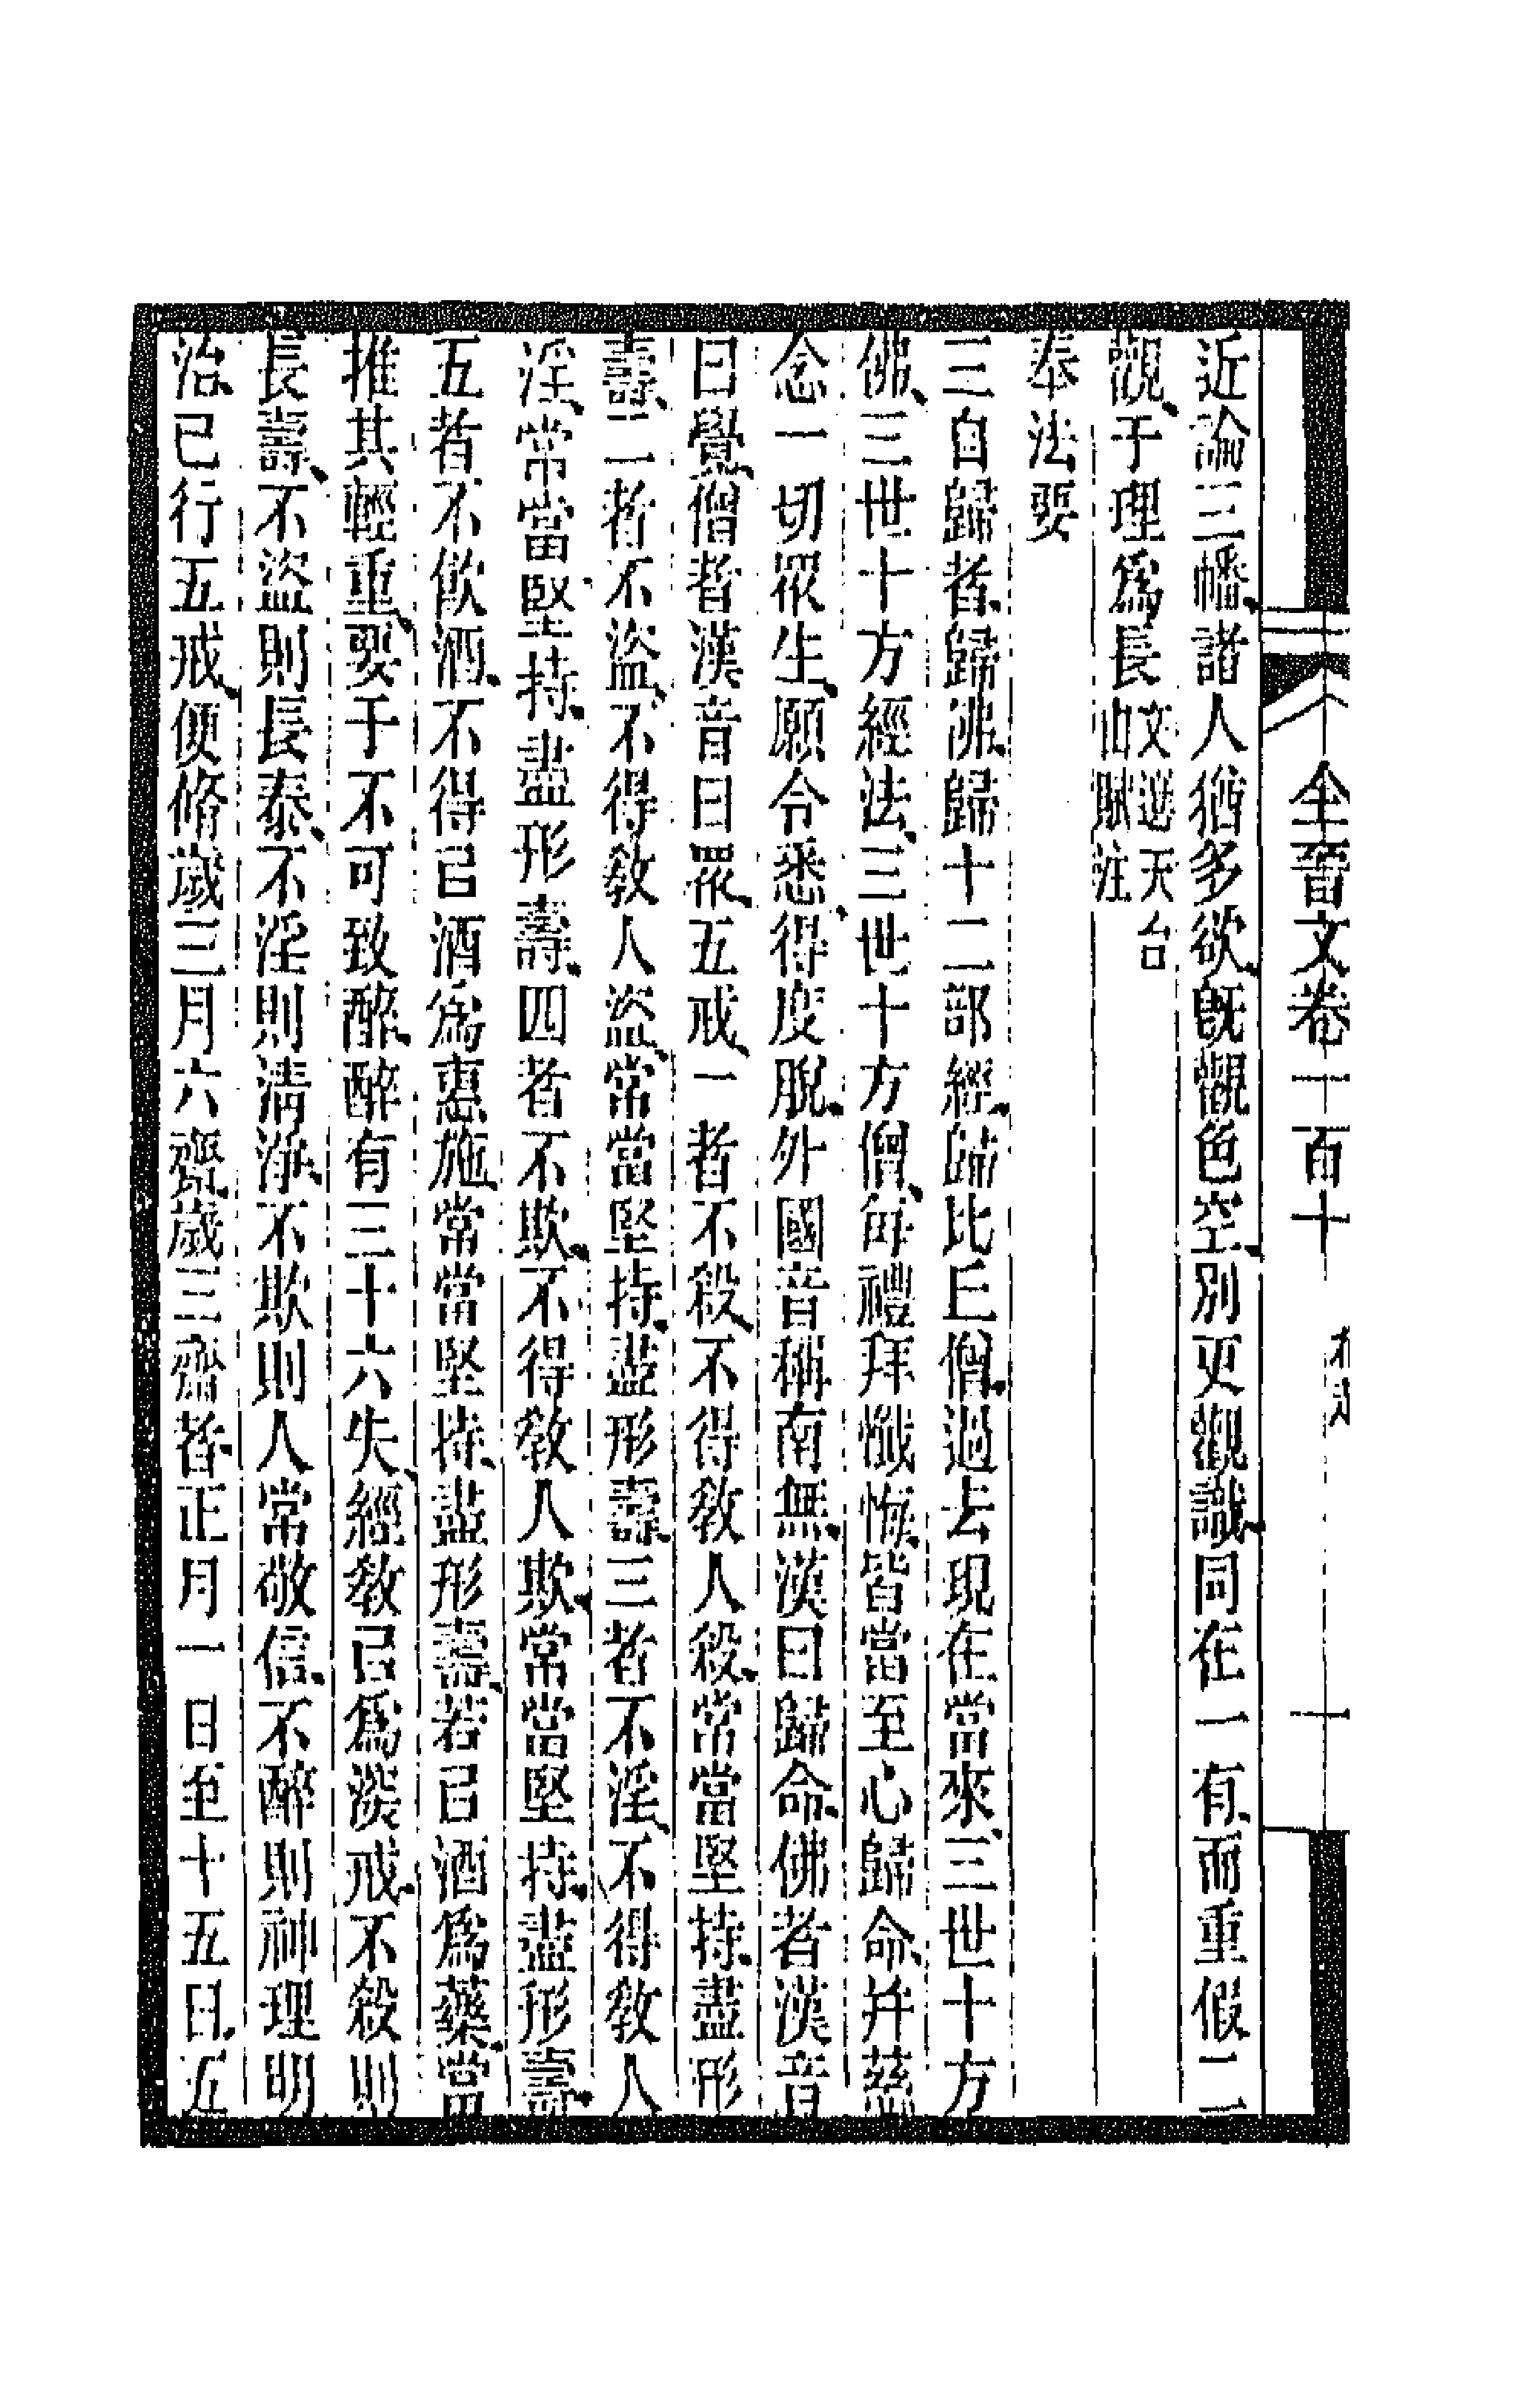 全晉文卷一百十
十
近論三幡、諸人猶多欲、旣觀色空、別更觀識、同在一有、而重假二
觀、于理爲長文選天台山賦注
奉法要
三自歸者、歸佛、歸十二部經、歸比丘僧、過去現在當來、三世十方
佛、三世十方經法、三世十方僧、每禮拜懺悔、皆當至心歸命、并慈
念一切眾生、願令悉得度脫、外國音稱南無、漢曰歸命、佛者漢音
曰覺、僧者漢音曰眾、五戒、一者不殺、不得敎人殺、常當堅持、盡形
壽、二者不盜、不得敎人盜、常當堅持、盡形壽、三者不淫、不得敎人
淫、常當堅持、盡形壽、四者不欺、不得敎人欺、常當堅持、盡形壽、
五者不飮酒、不得㠯酒爲惠施、常當堅持、盡形壽、若㠯酒爲藥、當
推其輕重、要于不可致醉、醉有三十六失、經敎㠯爲深戒、不殺則
長壽、不盜則長泰、不淫則淸淨、不欺則人常敬信、不醉則神理明
治、已行五戒、便脩歲三月六齋、歲三齋者、正月一日至十五日、五